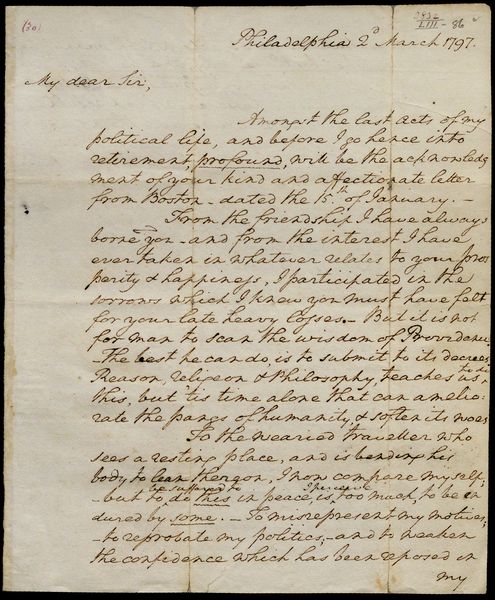 (30)
LIII - 86
Philadelphia 2d March 1797.
My dear Sir,
Amongst the last acts of my
political life, and before I go hence into
retirement, profound, will be the acknowledg
ment of your kind and affectionate letter
from Boston - dated the 15th of January. -
From the friendship I have always
borne you - and from the interest I have
ever taken in whatever relates to your pros
perity & happiness, I participated in the
sorrows which I knew you must have felt
for your late heavy losses. - But it is not
for man to scan the wisdom of Providence.
- The best he can do, is to submit to its decrees
Reason, religion & Philosophy, teaches us to do
this, but 'tis time alone that can amelio-
rate the pangs of humanity, & soften its woes
To the wearied traveller who
sees a resting place, and is bending his
body to lean thereon, I now compare myself;
- but to be suffered to do this in peace, is, I perceive too much, to be en
dured by some. - To misrepresent my motives;
- to reprobate my politics; - and to weaken
the confidence which has been reposed in
my